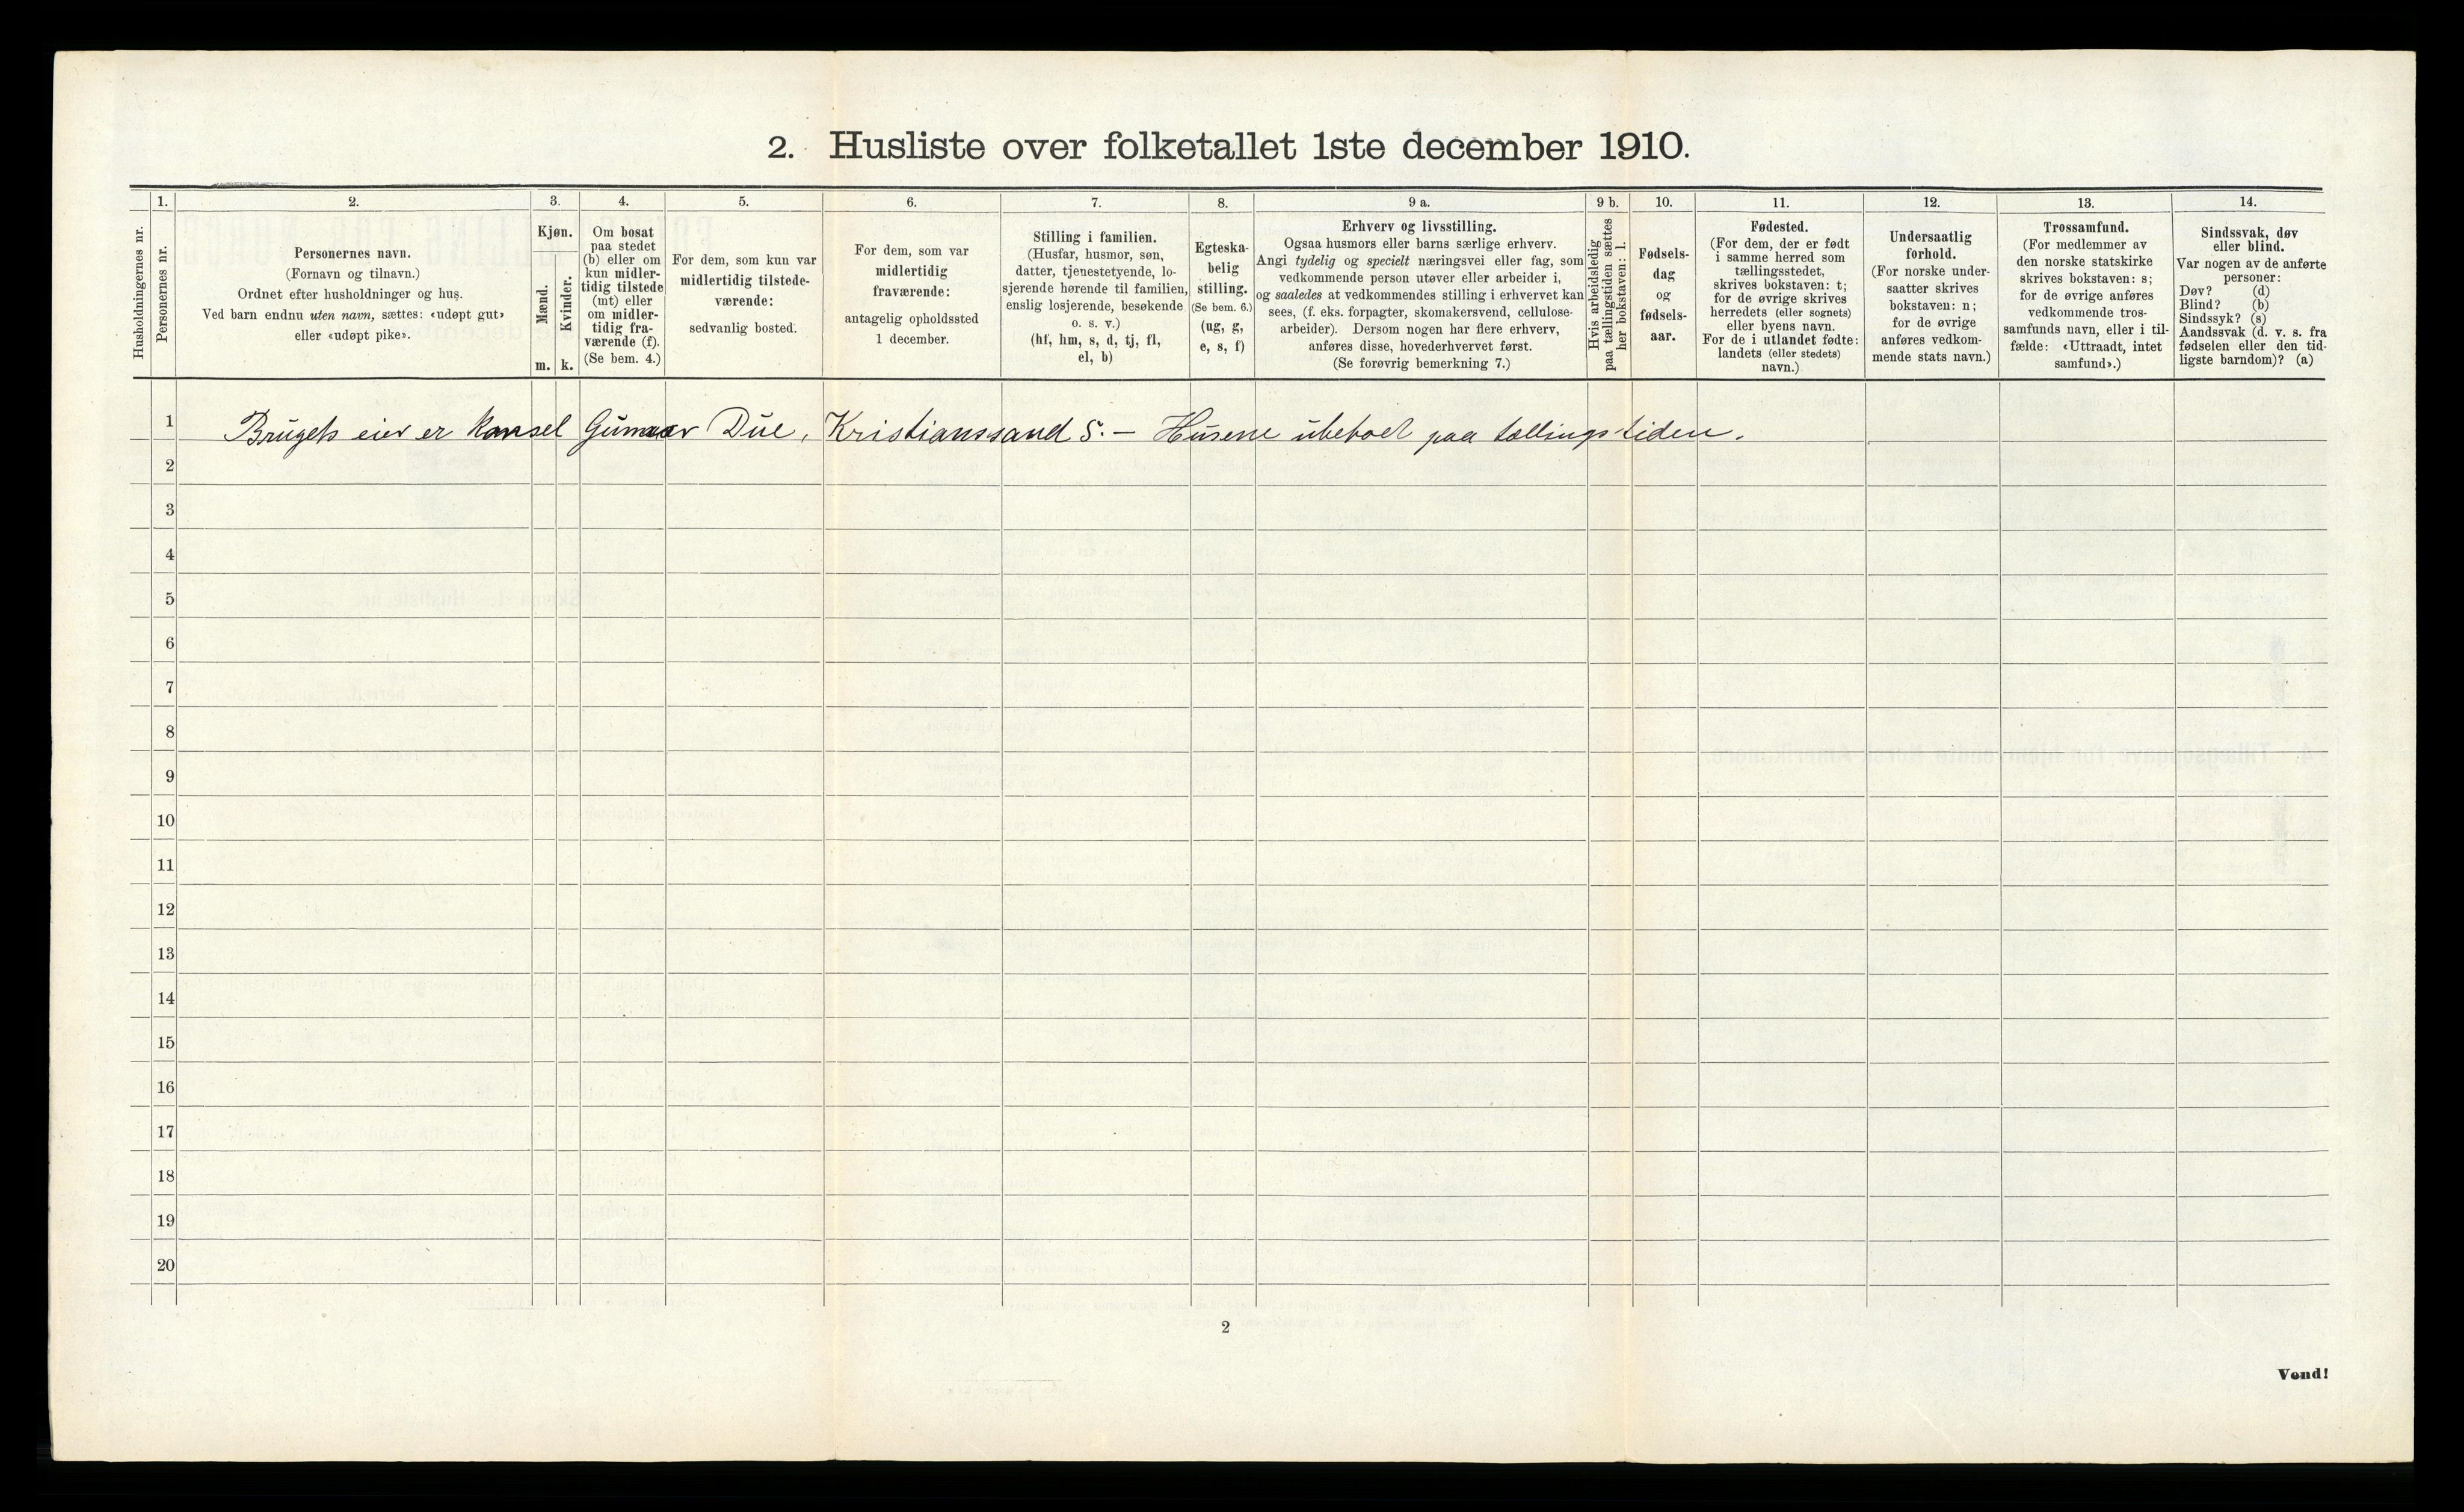 2. Husliste over folketallet 1ste december 1910.
Husholdningernes nr.
1.
Personernes nr.
2.
Personernes navn.
(Fornavn og tilnavn.)
Ordnet efter husholdninger og hus.
Ved barn endnu uten navn, sættes: «udøpt gut»
eller «udøpt pike».
3.
Kjøn.
Mænd.
m.
Kvinder.
k.
4.
Om bosat
paa stedet
(b) eller om
kun midler-
tidig tilstede
(mt) eller
om midler-
tidig fra-
værende (f).
(Se bem. 4.)
5.
For dem, som kun var
midlertidig tilstede-
værende:
sedvanlig bosted.
6.
For dem, som var
midlertidig
fraværende:
antagelig opholdssted
1 december.
7.
Stilling i familien.
(Husfar, husmor, søn,
datter, tjenestetyende, lo-
sjerende hørende til familien,
enslig losjerende, besøkende
o. s. v.)
(hf, hm, s, d, tj, fl,
el, b)
8.
Egteska-
belig
stilling.
(Se bem. 6.)
(ug, g,
e, s, f)
9 a.
Erhverv og livsstilling.
Ogsaa husmors eller barns særlige erhverv.
Angi tydelig og specielt næringsvei eller fag, som
vedkommende person utøver eller arbeider i,
og saaledes at vedkommendes stilling i erhvervet kan
sees, (f. eks. forpagter, skomakersvend, cellulose-
arbeider). Dersom nogen har flere erhverv,
anføres disse, hovederhvervet først.
(Se forøvrig bemerkning 7.)
9 b.
Hvis arbeidsledig
paa tællingstiden sættes
her bokstaven: l.
10.
Fødsels-
dag
og
fødsels-
aar.
11.
Fødested.
(For dem, der er født
i samme herred som
tællingsstedet,
skrives bokstaven: t;
for de øvrige skrives
herredets (eller sognets)
eller byens navn.
For de i utlandet fødte:
landets (eller stedets)
navn.)
12.
Undersaatlig
forhold.
(For norske under-
saatter skrives
bokstaven: n;
for de øvrige
anføres vedkom-
mende stats navn.)
13.
Trossamfund.
(For medlemmer av
den norske statskirke
skrives bokstaven: s;
for de øvrige anføres
vedkommende tros-
samfunds navn, eller i til-
fælde: «Uttraadt, intet
samfund».)
14.
Sindssvak, døv
eller blind.
Var nogen av de anførte
personer:
Døv? (d)
Blind? (b)
Sindssyk? (s)
Aandssvak (d. v. s. fra
fødselen eller den tid-
ligste barndom)? (a)
1 Brugets eier er konsel Gunnar Due, Kristianssand S. — Husene ubeboet paa tællingstiden.
2
3
4
5
6
7
8
9
10
11
12
13
14
15
16
17
18
19
20
2
Vend!